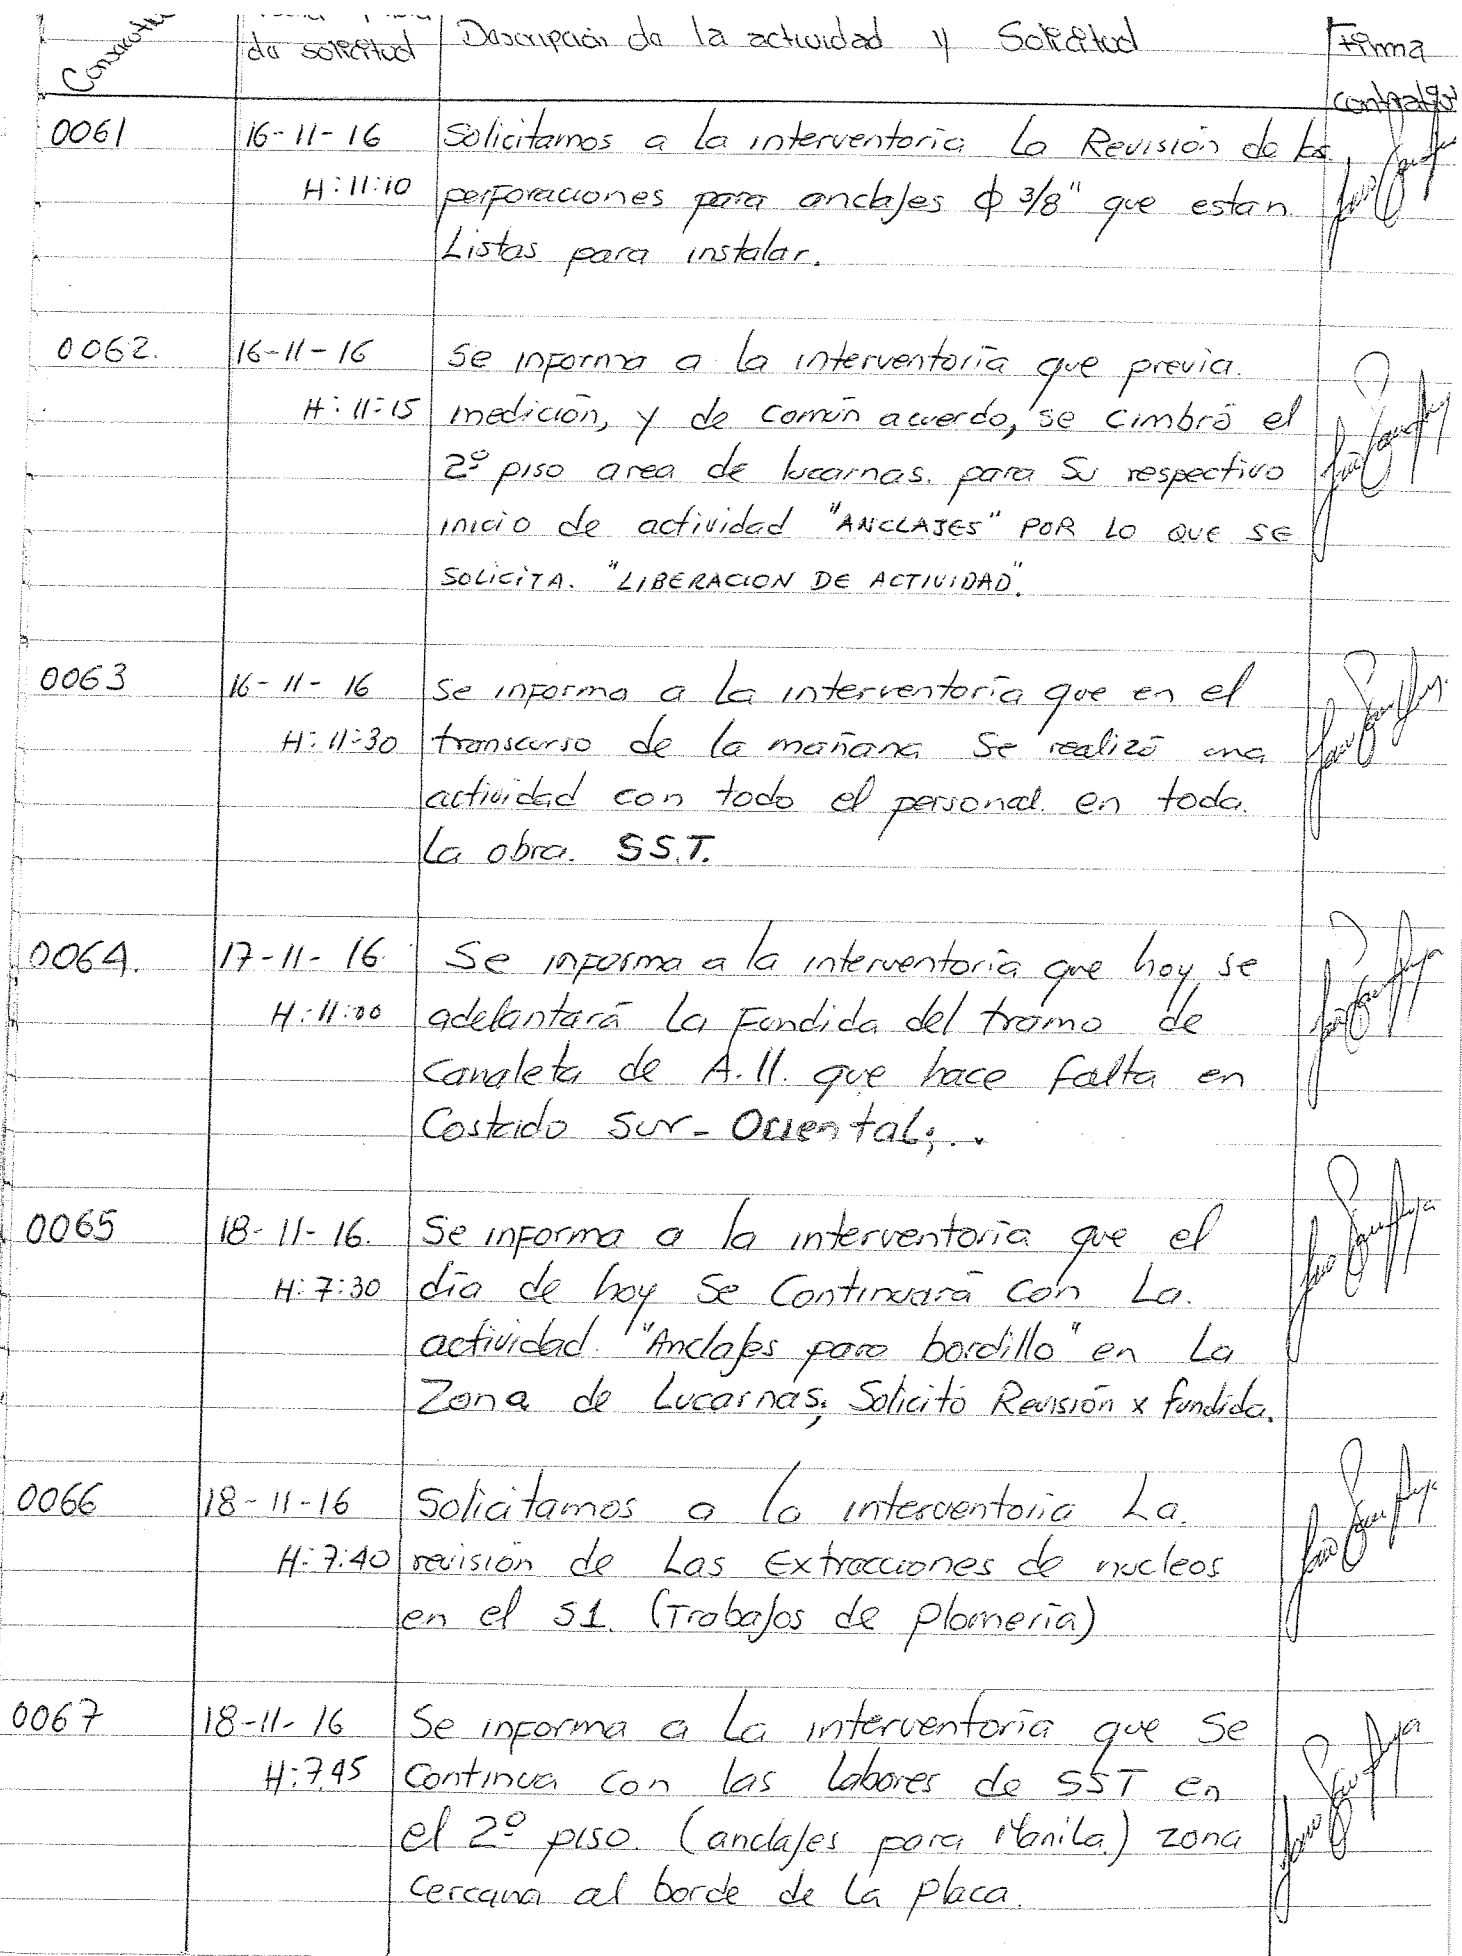 Consecutivo
Fecha Hora
de solicitud
Descripción de la actividad y Solicitud
Firma
contratista
0061 16-11-16 Solicitamos a la interventoria La Revisión de las
H:11:10 perforaciones para anclajes ϕ 3/8" que estan
Listas para instalar.
0062. 16-11-16 Se informa a la interventoria que previa.
H:11:15 medición, y de común acuerdo, se cimbró el
2º piso area de lucarnas. para su respectivo
inicio de actividad "ANCLAJES" POR LO QUE SE
SOLICITA. "LIBERACION DE ACTIVIDAD".
0063 16-11-16 Se informa a La interventoría que en el
H:11:30 transcurso de la mañana Se realizó una
actividad con todo el personal. en toda.
La obra. SS.T.
0064. 17-11-16 Se informa a la interventoría que hoy se
H:11:00 adelantará La Fundida del tramo de
Canaleta de A.ll. que hace falta en
Costado Sur-Oriental;..
0065 18-11-16. Se informa a la interventoria que el
H:7:30 día de hoy Se Continuará con La.
actividad. "Anclajes para bordillo" en La
Zona de Lucarnas; Solicitó Revisión x fundida.
0066 18-11-16 Solicitamos a la interventoria La.
H:7:40 revisión de Las Extracciones de nucleos
en el S1. (Trabajos de Plomería)
0067 18-11-16 Se informa a La interventoría que Se
H:7:45 Continua con las Labores de SST en
el 2º piso. (anclajes para Manila.) zona
Cercana al borde de La Placa.